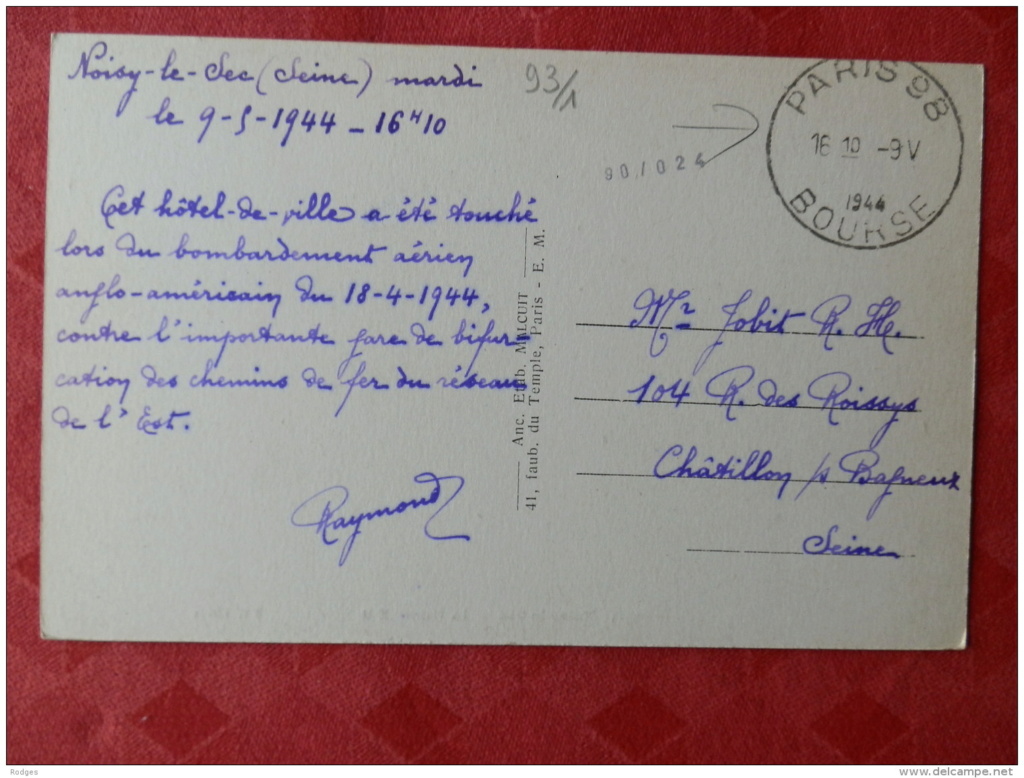 Noisy-le-Sec (Seine) mardi
le 9-5-1944 - 16H10
Cet hôtel-de-ville a été touché
lors du bombardement aérien
anglo-américain du 18-4-1944,
contre l'importante gare de bifur-
cation des chemins de fer du réseau
de l'Est.
Raymond
93/1
90/024
PARIS 98
16 10 -9 V
1944
BOURSE
Anc. Etab. MALCUIT
41, faub. du Temple, Paris - E. M.
Mr Jobit R. M.
104 R. des Roissys
Châtillon s/ Bagneux
Seine
Rodges
www.delcampe.net